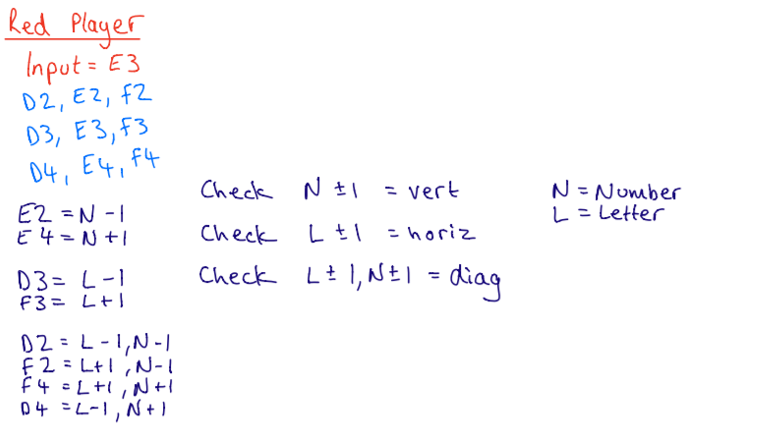 Red Player
Input = E3
D2, E2, F2
D3, E3, F3
D4, E4, F4
E2 = N-1
E4 = N+1
D3 = L-1
F3 = L+1
D2 = L-1, N-1
F2 = L+1, N-1
F4 = L+1, N+1
D4 = L-1, N+1
Check N ±1 = vert
Check L ±1 = horiz
Check L± 1, N±1 = diag
N = Number
L = Letter